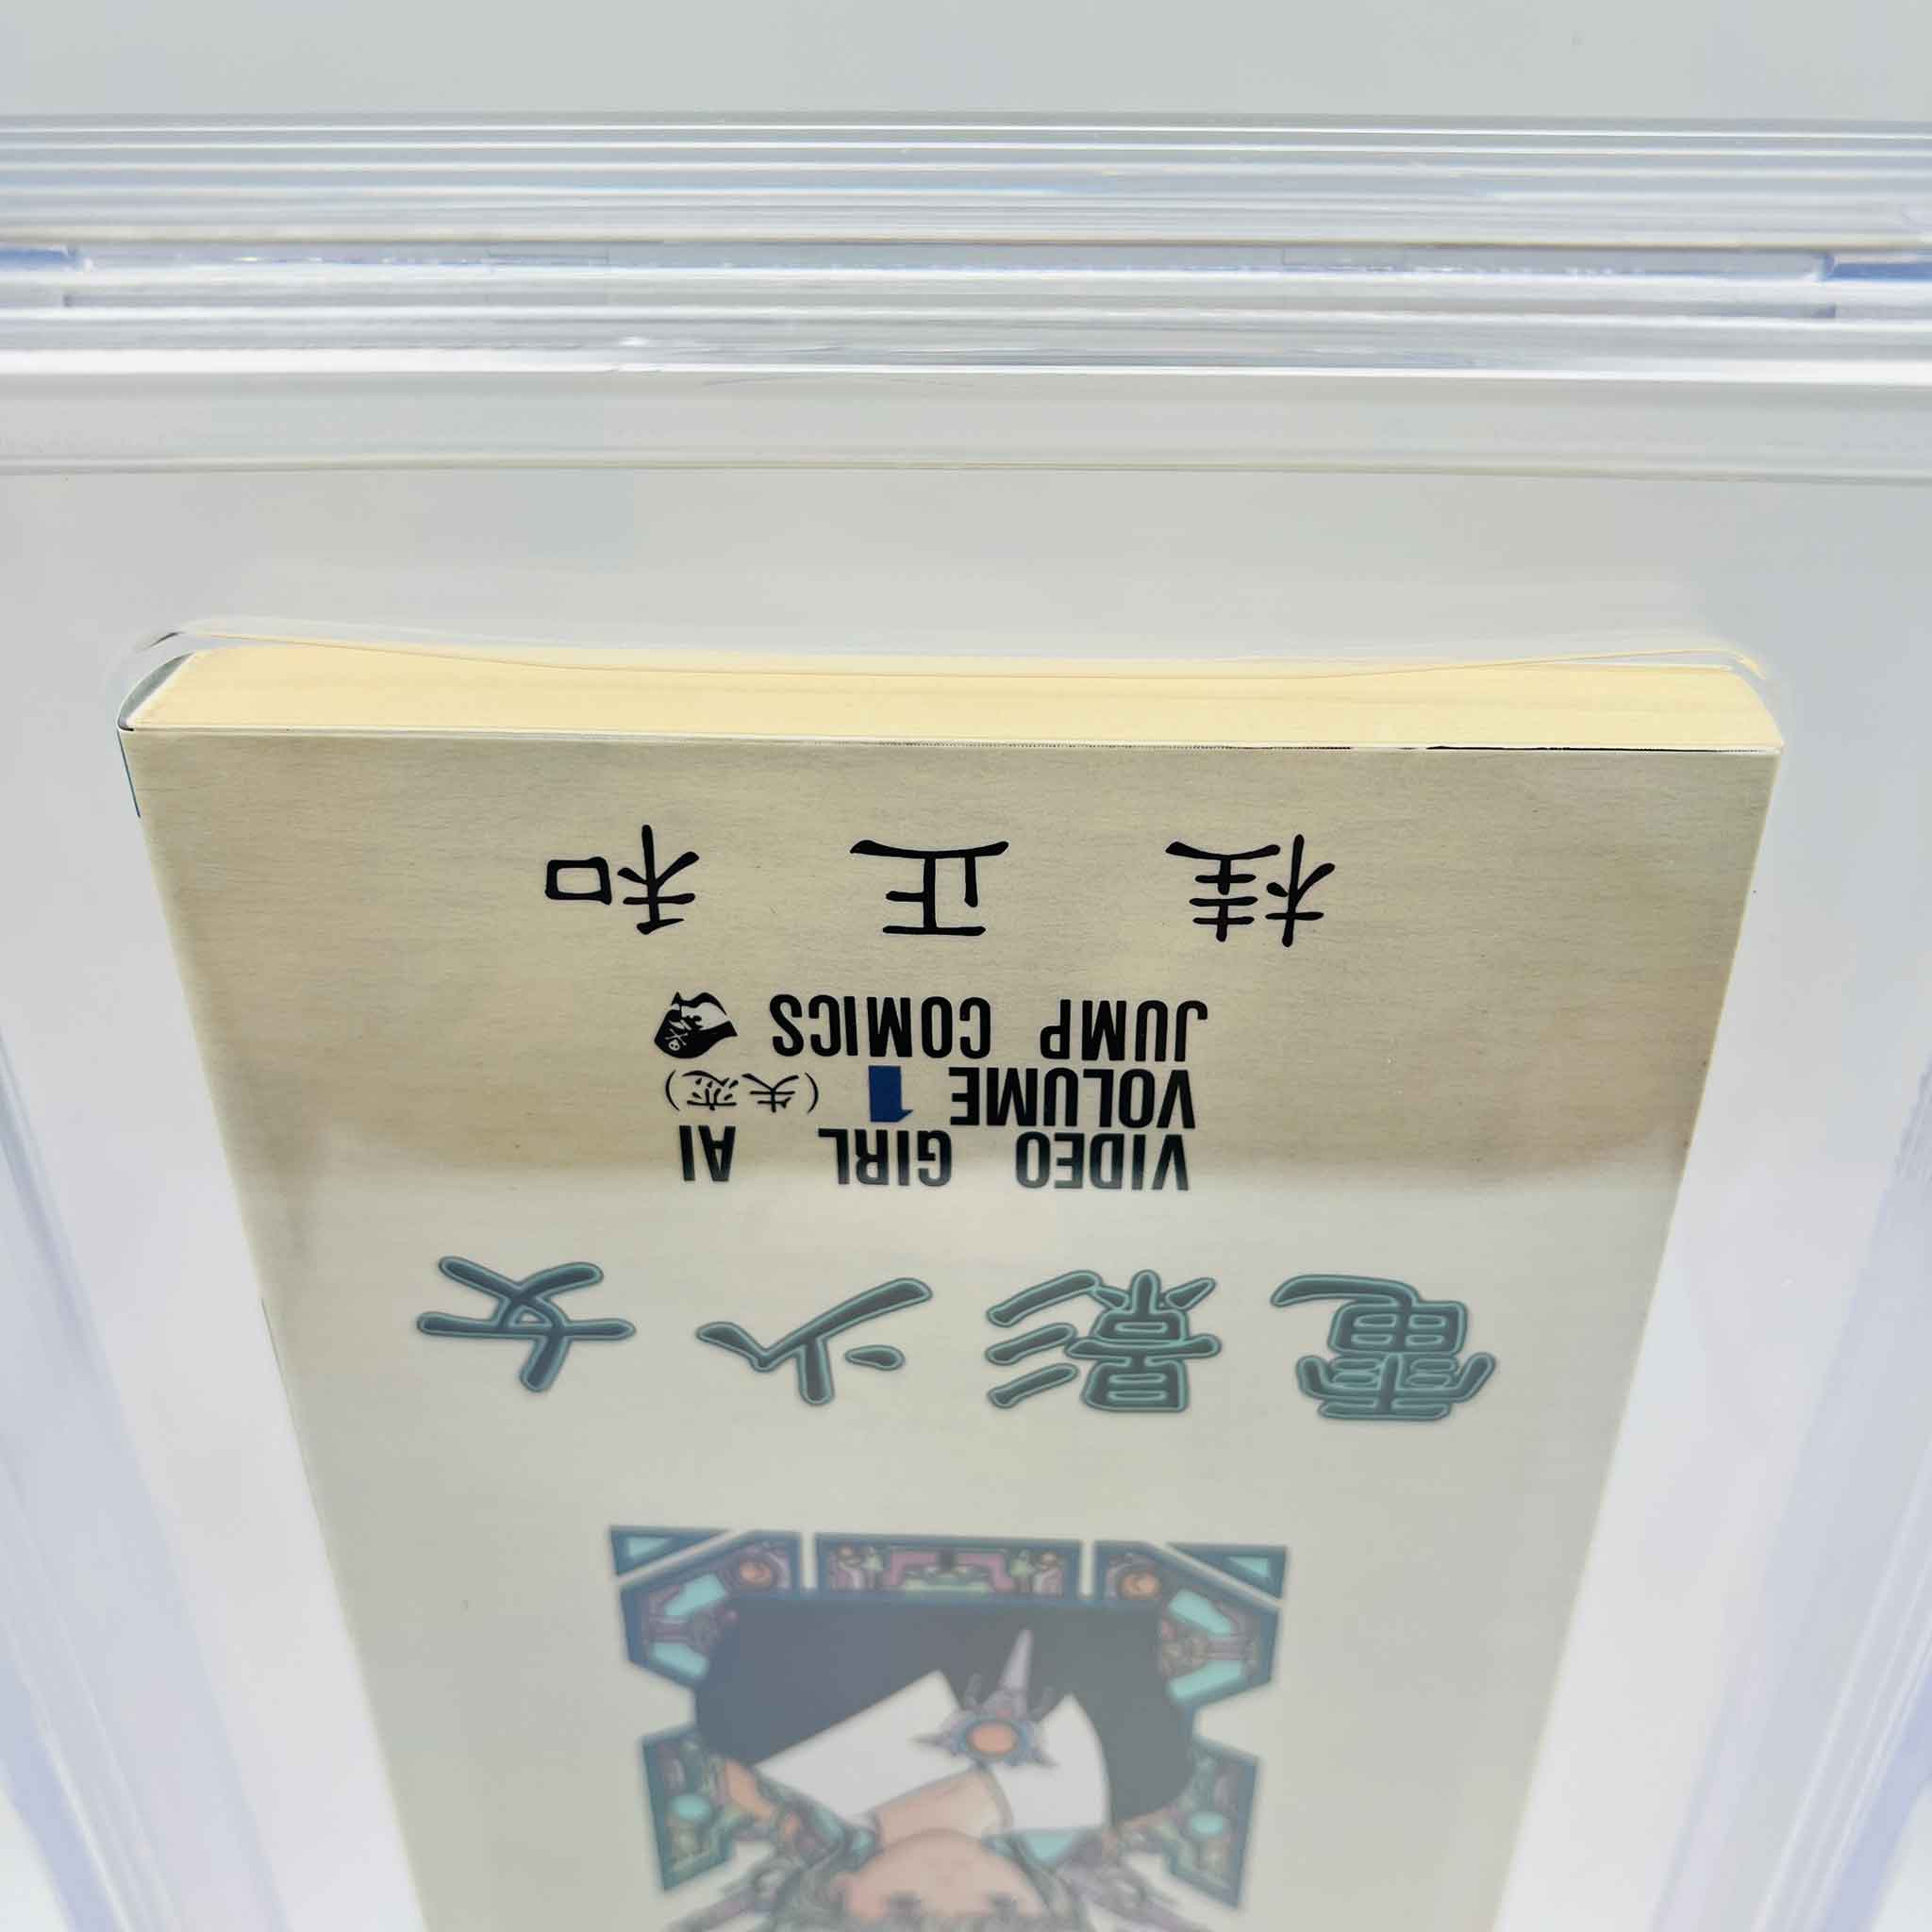 電影少女
VIDEO GIRL AI
VOLUME 1 (失恋)
JUMP COMICS
桂正和